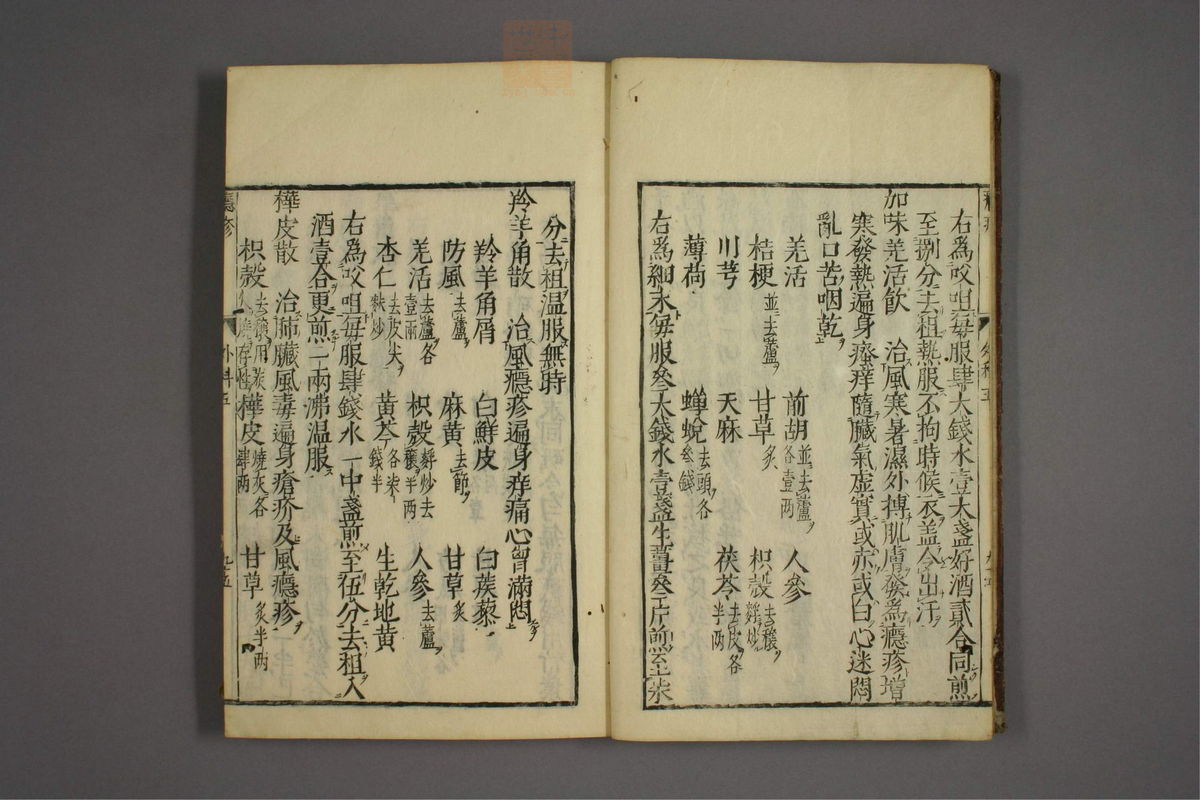 右為㕮咀每服肆大錢水壹大盞好酒貳合同煎
至捌分去柤熱服不拘時候衣盖令出汗
加味羌活飲　治風寒暑濕外搏肌膚發為癮疹增
寒發熱遍身瘙痒隨臟氣虛實或赤或白心迷悶
亂口苦咽乾
羌活　前胡並去蘆各壹兩　人參
桔梗並去蘆　甘草炙　枳殼去穰麩炒
川芎　天麻　茯苓去皮各半兩
薄荷　蟬蛻去頭各叄錢
右為細末每服叄大錢水壹盞生薑叄片煎至柒
分去柤温服無時
羚羊角散　治風癮疹遍身痒痛心胷滿悶
羚羊角屑　白鮮皮　白蒺藜
防風去蘆　麻黄去節　甘草炙
羌活去蘆各壹兩　枳殼麩炒去穰半兩　人參去蘆
杏仁去皮尖麩炒　黄芩各柒錢半　生乾地黄
右為㕮咀每服肆錢水一中盞煎至伍分去柤入
酒壹合更煎一兩沸温服
樺皮散　治肺臟風毒遍身瘡疥及風癮疹
枳殼去穰用炭燒存性　樺皮燒灰各肆兩　甘草炙半兩
癮疹　外科五　九五